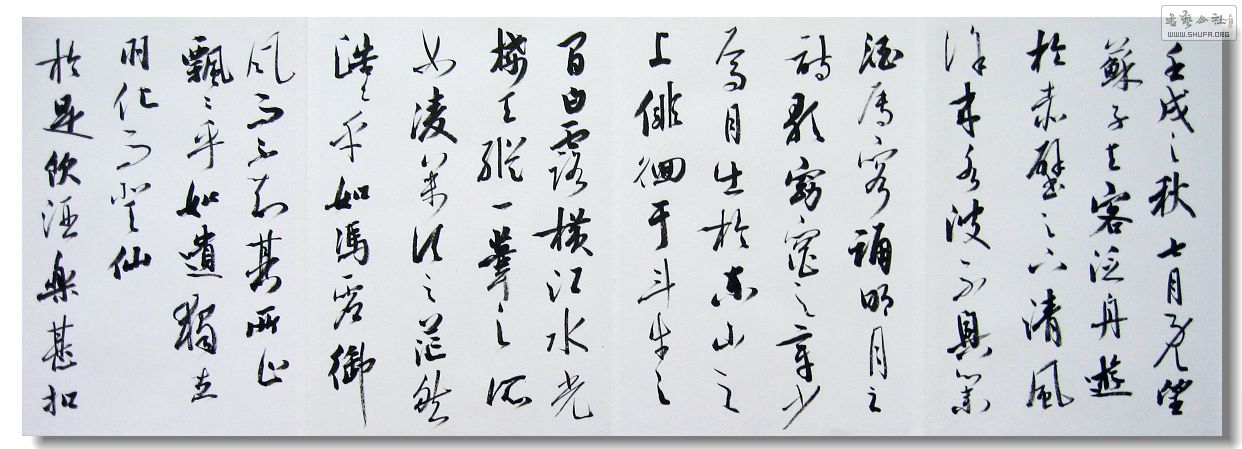 壬戌之秋七月既望
蘇子与客泛舟遊
於赤壁之下清風
徐来水波不興舉
酒屬客誦明月之
詩歌窈窕之章少
焉月出於東山之
上徘徊于斗牛之
間白露横江水光
接天縱一葦之所
如凌萬頃之茫然
浩〻乎如馮虚御
風而不知其所止
飄〻乎如遺獨立
羽化而登仙
於是飲酒樂甚扣
書藝公社
WWW.SHUFA.ORG